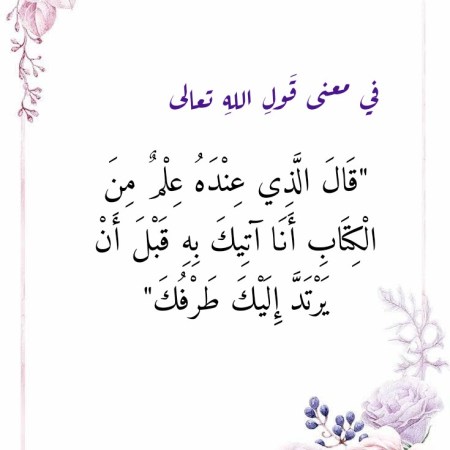 في معنى قَولِ اللهِ تعالى
"قَالَ الَّذِي عِنْدَهُ عِلْمٌ مِنَ
الْكِتَابِ أَنَا آتِيكَ بِهِ قَبْلَ أَنْ
يَرْتَدَّ إِلَيْكَ طَرْفُكَ"